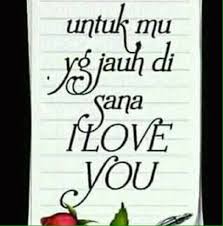 untuk mu
yg jauh di
sana
I LOVE
YOU